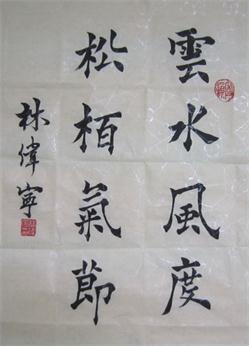 雲水風度
松栢氣節
林偉寧